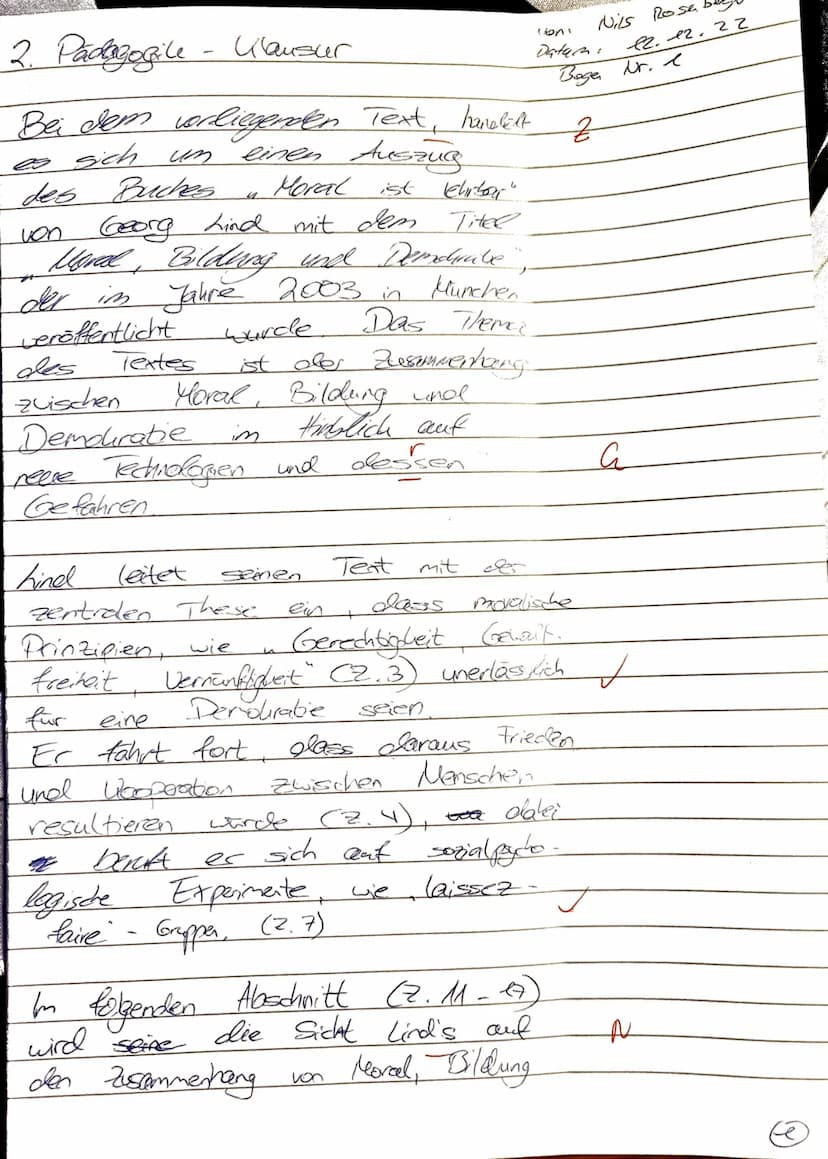 2. Pädagogik - Klausur
von: Nils Rosenberg
Datum: 12.12.22
Bogen Nr. 1
Bei dem vorliegenden Text, handelt
Z
es sich um einen Auszug
des Buches „Moral ist lehrbar"
von Georg Lind mit dem Titel
„Moral, Bildung und Demokratie",
der im Jahre 2003 in München
veröffentlicht wurde. Das Thema
des Textes ist der Zusammenhang
zwischen Moral, Bildung und
Demokratie im Hinblick auf
neue Technologien und dessen
r
G
Gefahren.
Lind leitet seinen Text mit der
zentralen These ein, dass moralische
Prinzipien, wie „Gerechtigkeit, Gewalt-
freiheit, Vernünftigkeit" (Z.3) unerlässlich
für eine Demokratie seien.
Er fährt fort, dass daraus Frieden
und Kooperation zwischen Menschen
resultieren würde (Z.4), dabei
beruft er sich auf sozialpsycho-
logische Experimente, wie „laissez-
faire"-Gruppen. (Z.7)
Im folgenden Abschnitt (Z.11-17)
wird seine die Sicht Lind's auf
N
den Zusammenhang von Moral, Bildung